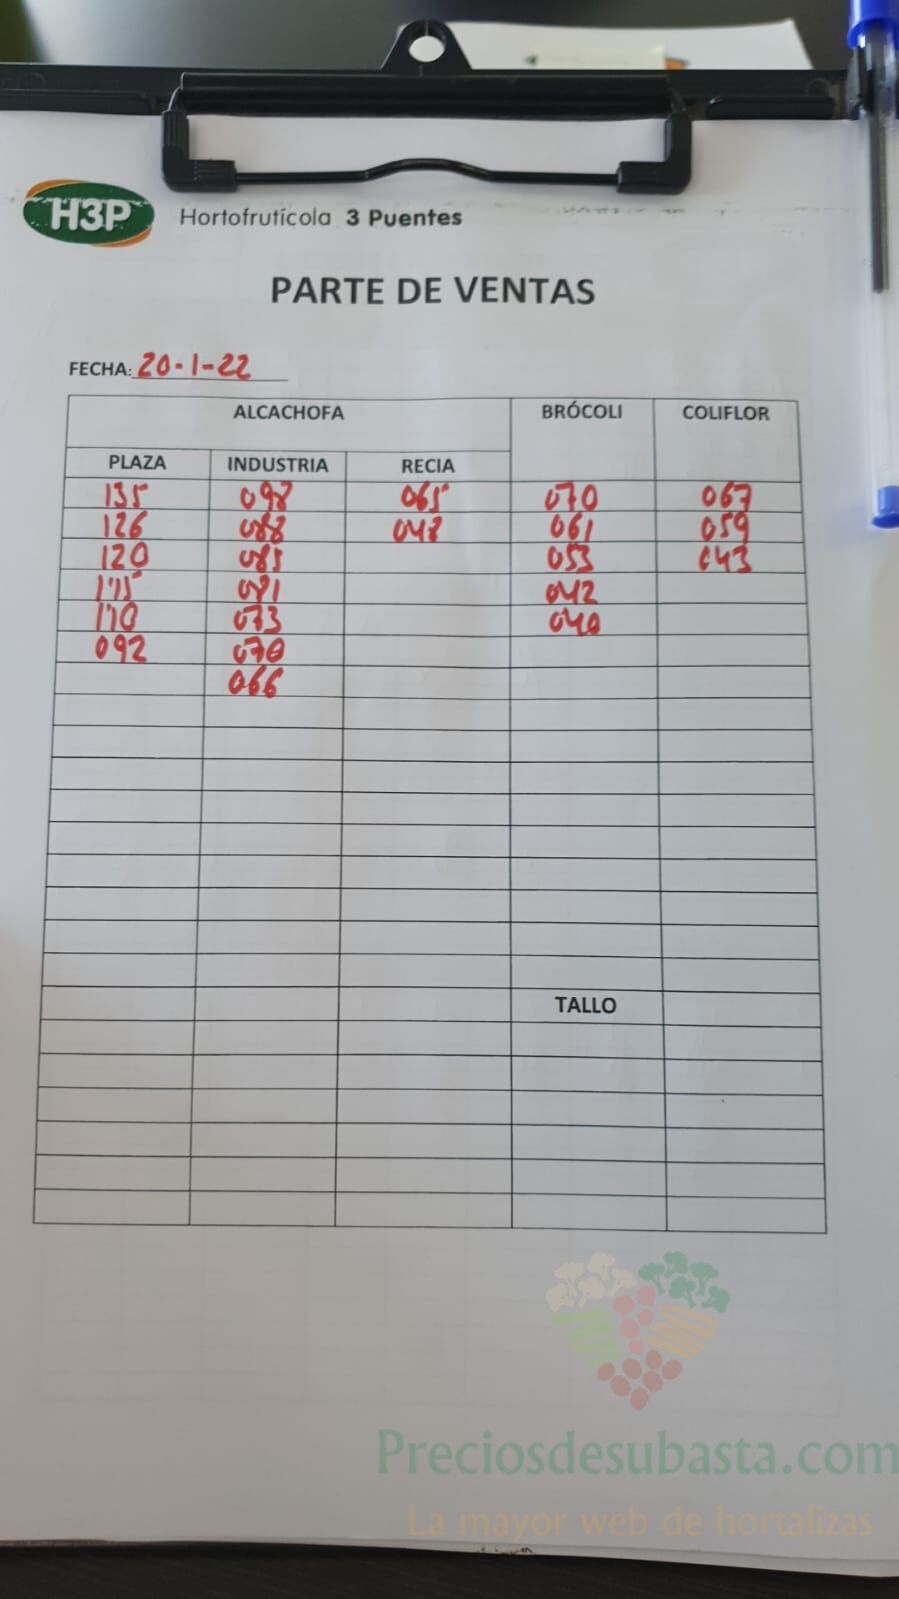 H3P Hortofrutícola 3 Puentes
PARTE DE VENTAS
FECHA: 20-1-22
ALCACHOFA BRÓCOLI COLIFLOR
PLAZA INDUSTRIA RECIA
135 098 065 070 067
126 088 048 061 059
120 085 053 043
115 081 042
110 073 040
092 070
066
TALLO
Preciosdesubasta.com
La mayor web de hortalizas